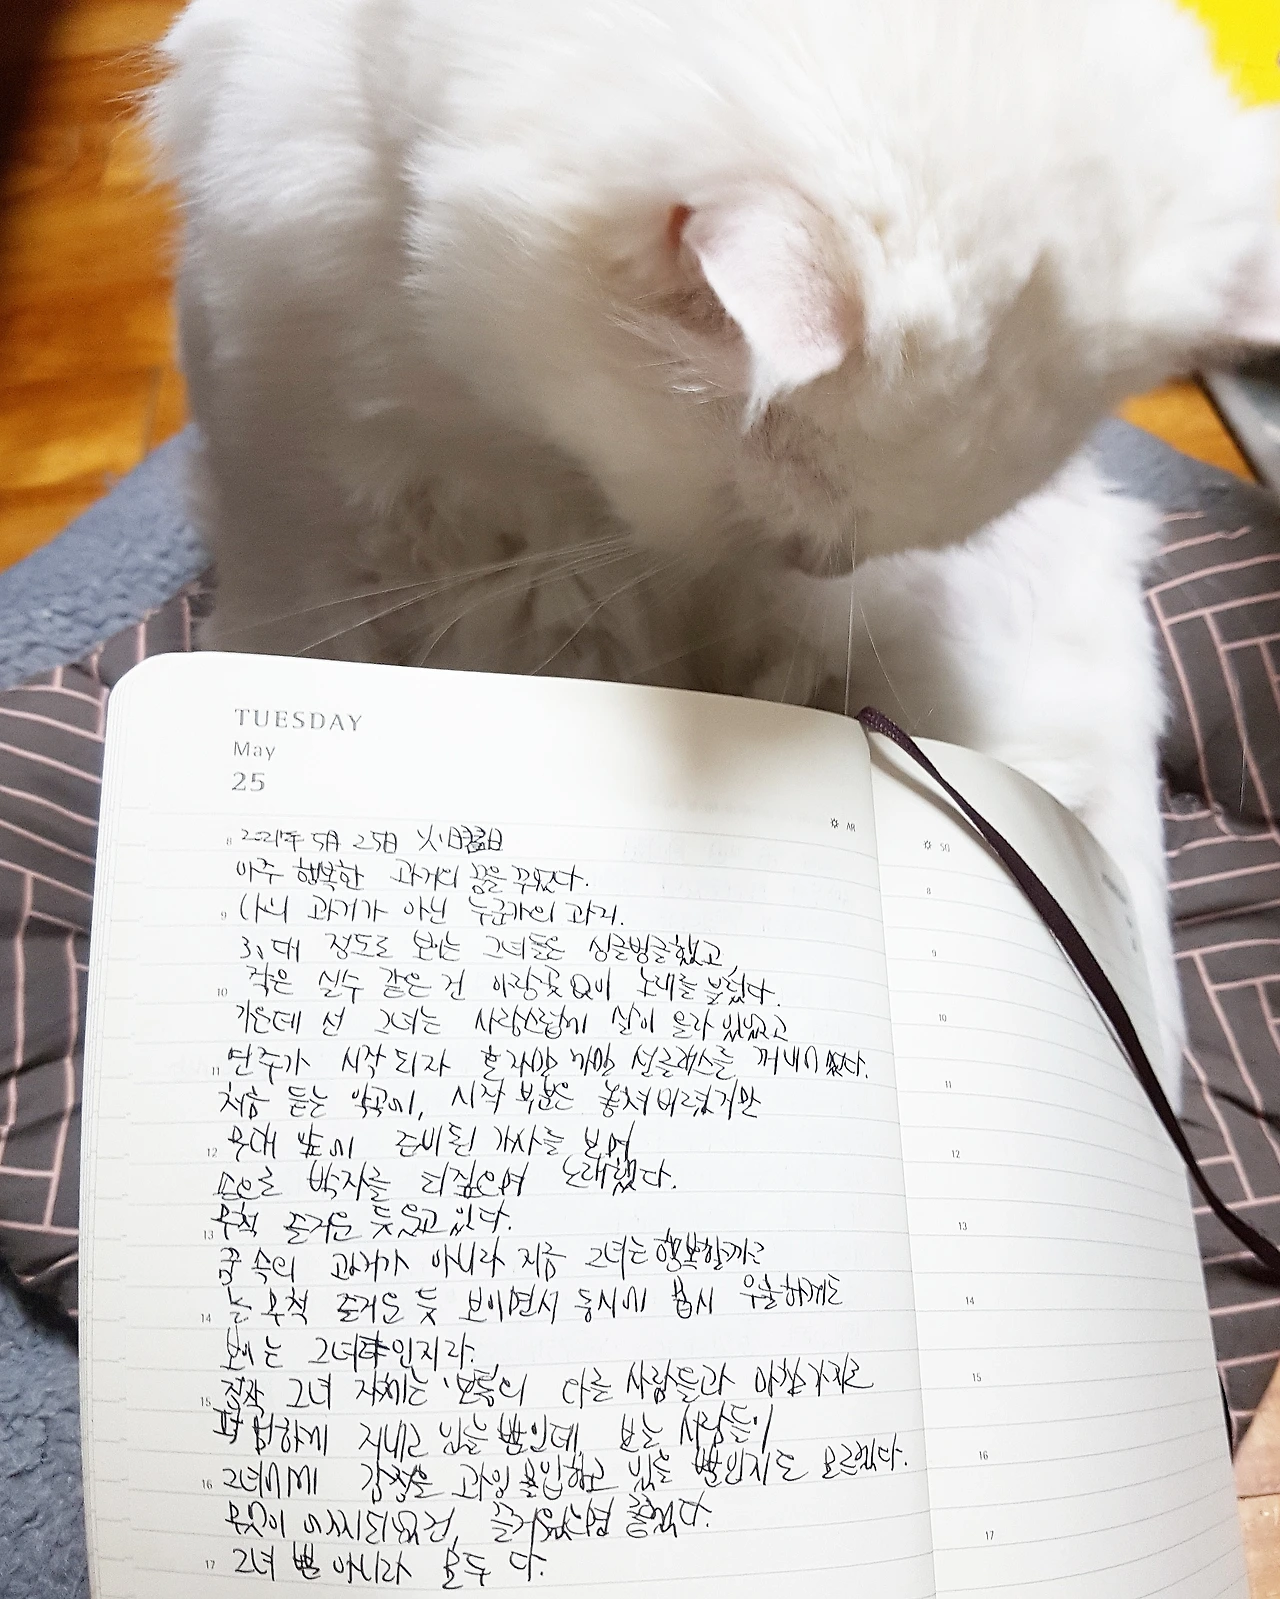 TUESDAY
May
25
AM
8 2021年 5月 25日 火曜日
아주 행복한 과거의 꿈을 꾸었다.
9 나의 과거가 아닌 누군가의 과거.
30대 정도로 보이는 그녀들은 싱글벙글했고,
10 작은 실수 같은 건 아랑곳없이 노래를 불렀다.
가운데 선 그녀는 사랑스럽게 살이 올라 있었고
11 연주가 시작되자 혼자만 까만 선글래스를 꺼내어 썼다.
처음 듣는 악곡에, 시작 부분은 놓쳐버렸지만
12 무대 앞에 준비된 가사를 보며
손으로 박자를 되짚으며 노래했다.
13 무척 즐거운 듯 웃고 있다.
꿈 속의 과거가 아니라 지금 그녀는 행복할까?
14 늘 무척 즐거운 듯 보이면서 동시에 몹시 우울하게도
보이는 그녀인지라.
15 정작 그녀 자체는 보통의 다른 사람들과 마찬가지로
평범하게 지내고 있을 뿐인데 보는 사람들이
16 그녀에게 감정을 과잉 몰입하고 있을 뿐인지도 모르겠다.
무엇이 어찌되었건, 즐거웠으면 좋겠다.
17 그녀 뿐 아니라 모두 다.
8
9
10
11
12
13
14
15
16
17